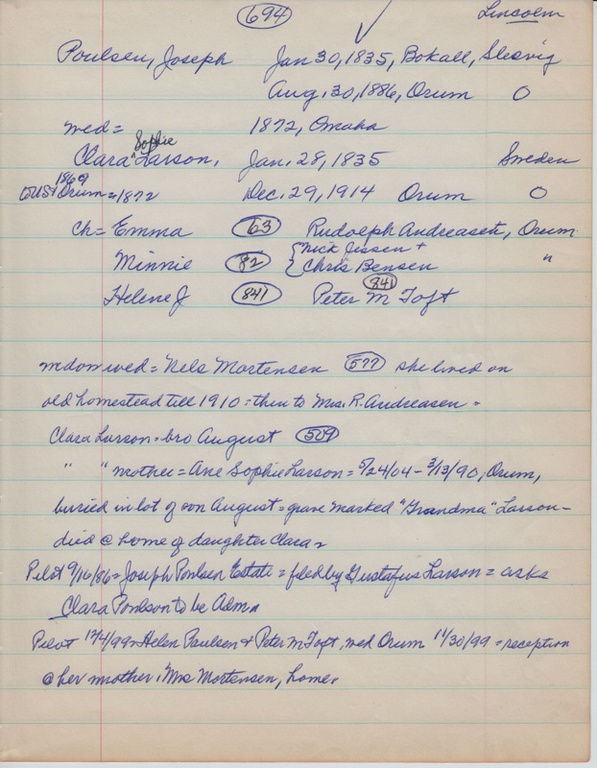 694 Lincoln
Poulsen, Joseph Jan 30, 1835, Bokall, Slesvig
Aug. 30, 1886, Orum O
wed = 1872, Omaha
Sophie
Clara "Larson, Jan. 28, 1835 Sweden
1869
to US + Orum = 1872 Dec. 29, 1914 Orum O
ch = Emma 63 Rudolph Andreasen, Orum
Minnie 82 { Nick Jessen +
Chris Bensen "
841
Helene J 841 Peter M Toft
widow wed = Nels Mortensen 577 she lived on
old homestead till 1910 = then to Mrs. R. Andreasen =
Clara Larson = bro August 509
" " mother = Ane Sophie Larson = 5/24/04 - 3/13/90, Orum,
buried in lot of son August = grave marked "Grandma" Larson -
died @ home of daughter Clara =
Pilot 9/16/86 = Joseph Poulsen Estate = filed by Gustafus Larson = asks
Clara Poulson to be Adm
Pilot 12/4/99 = Helen Paulsen + Peter M Toft, wed Orum 11/30/99 = reception
@ her mother, Mrs Mortensen, home.